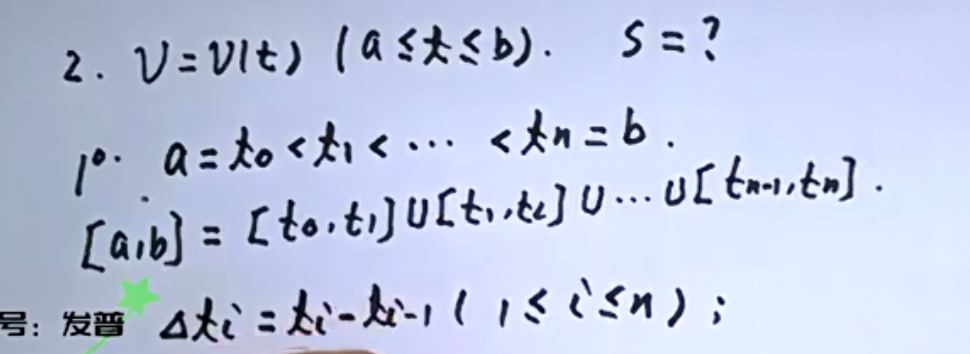 2. V=V(t) (a≤t≤b). S=?
1°. a=t₀<t₁<⋯<tₙ=b.
[a,b]=[t₀,t₁]∪[t₁,t₂]∪⋯∪[tₙ₋₁,tₙ].
号：发普 Δtᵢ=tᵢ-tᵢ₋₁ (1≤i≤n);